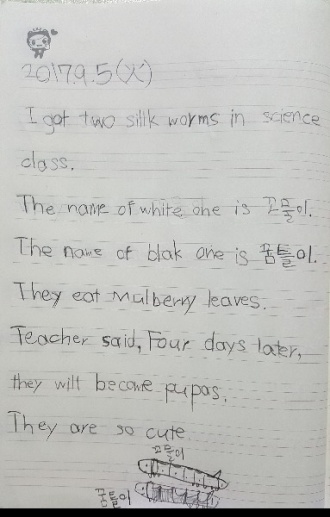 2017.9.5(火)
I got two silik worms in science
class.
The name of white one is 꼬물이.
The name of blak one is 꿈틀이.
They eat Mulberry leaves.
Teacher said, Four days later,
they will become pupas.
They are so cute
꼬물이
꿈틀이